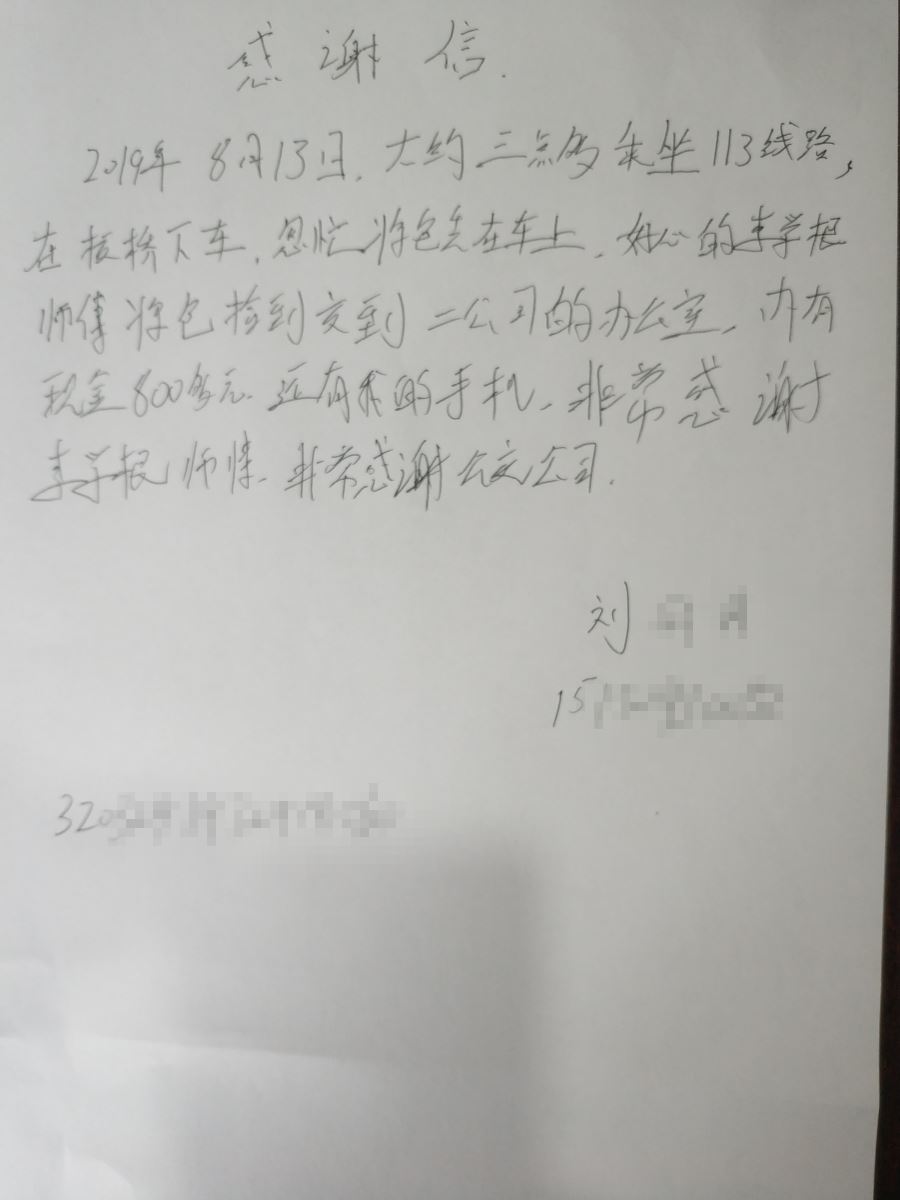 感谢信.
2019年8月13日.大约三点多乘坐113线路,
在板桥下车.匆忙将包丢在车上.好心的李学根
师傅将包捡到交到二公司的办公室.内有
现金800多元.还有我的手机.非常感谢
李学根师傅.非常感谢公交公司.
刘
15
320